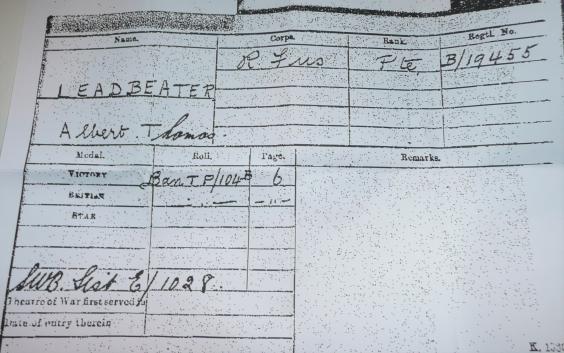 Name. Corps. Rank. Regtl. No.
R Fus Pte B/19455
LEADBEATER
Albert Thomas.
Medal. Roll. Page. Remarks.
VICTORY TP/104B 6
BRITISH -〃-
STAR
SWB. List E/1028.
Theatre of War first served in
Date of entry therein
K. 1380